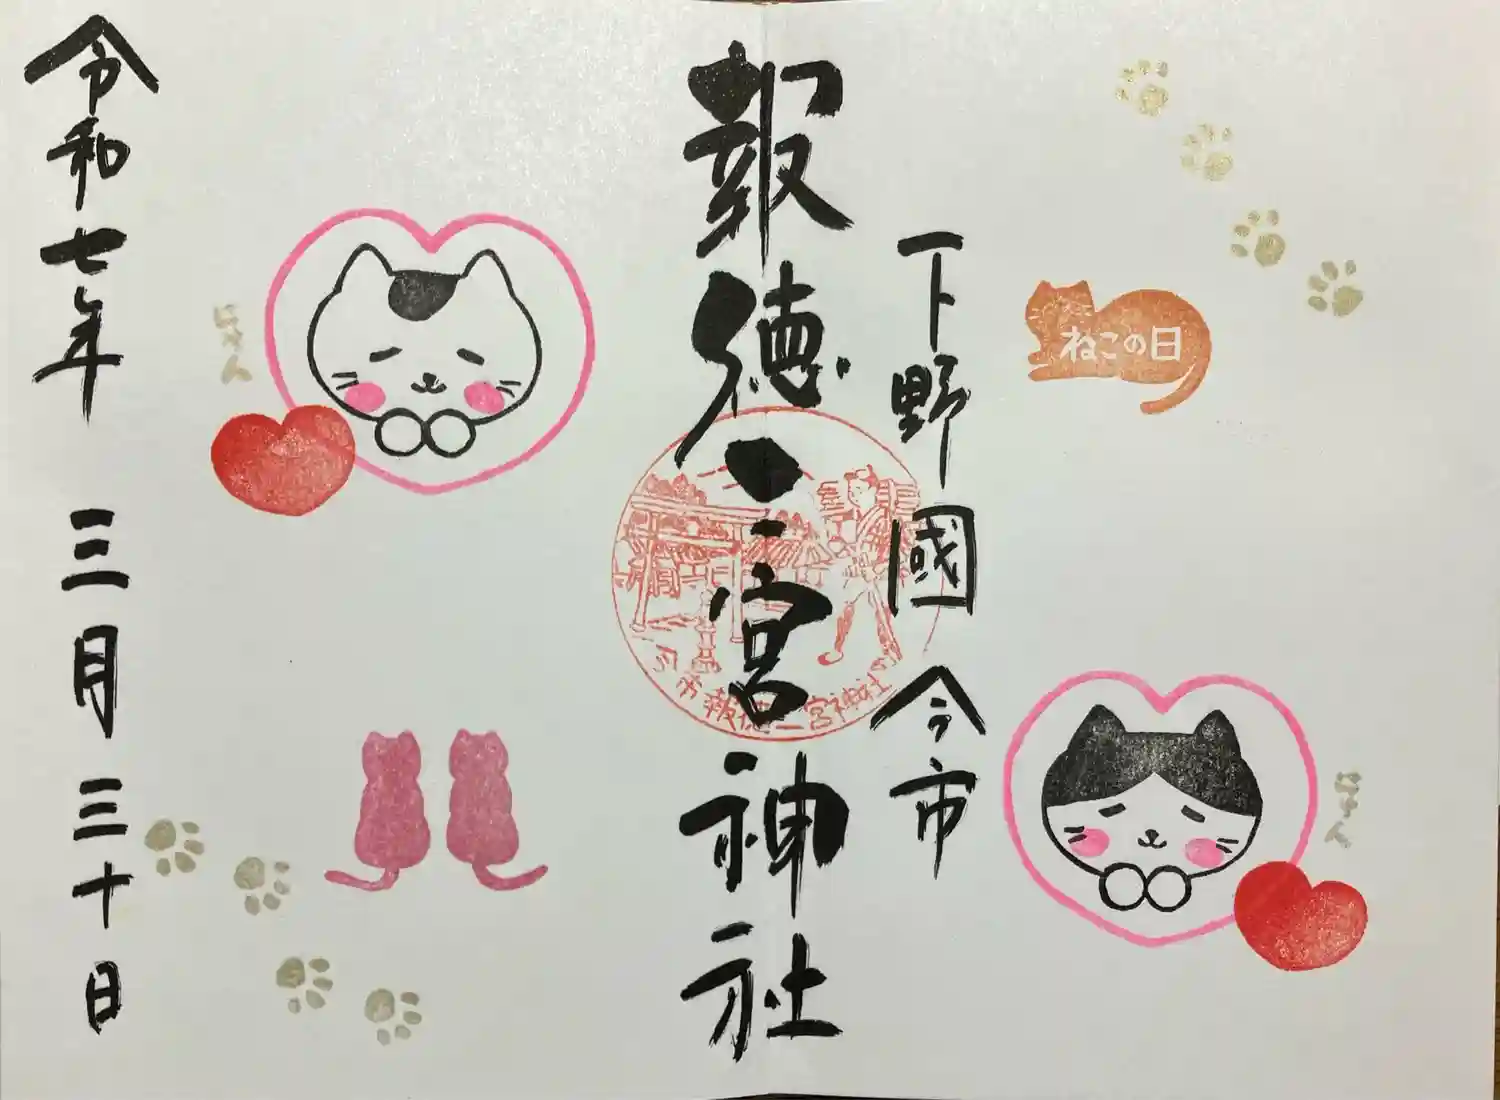 下野國今市
報徳二宮神社
今市報徳二宮神社
ねこの日
にゃん
にゃん
令和七年 三月三十日